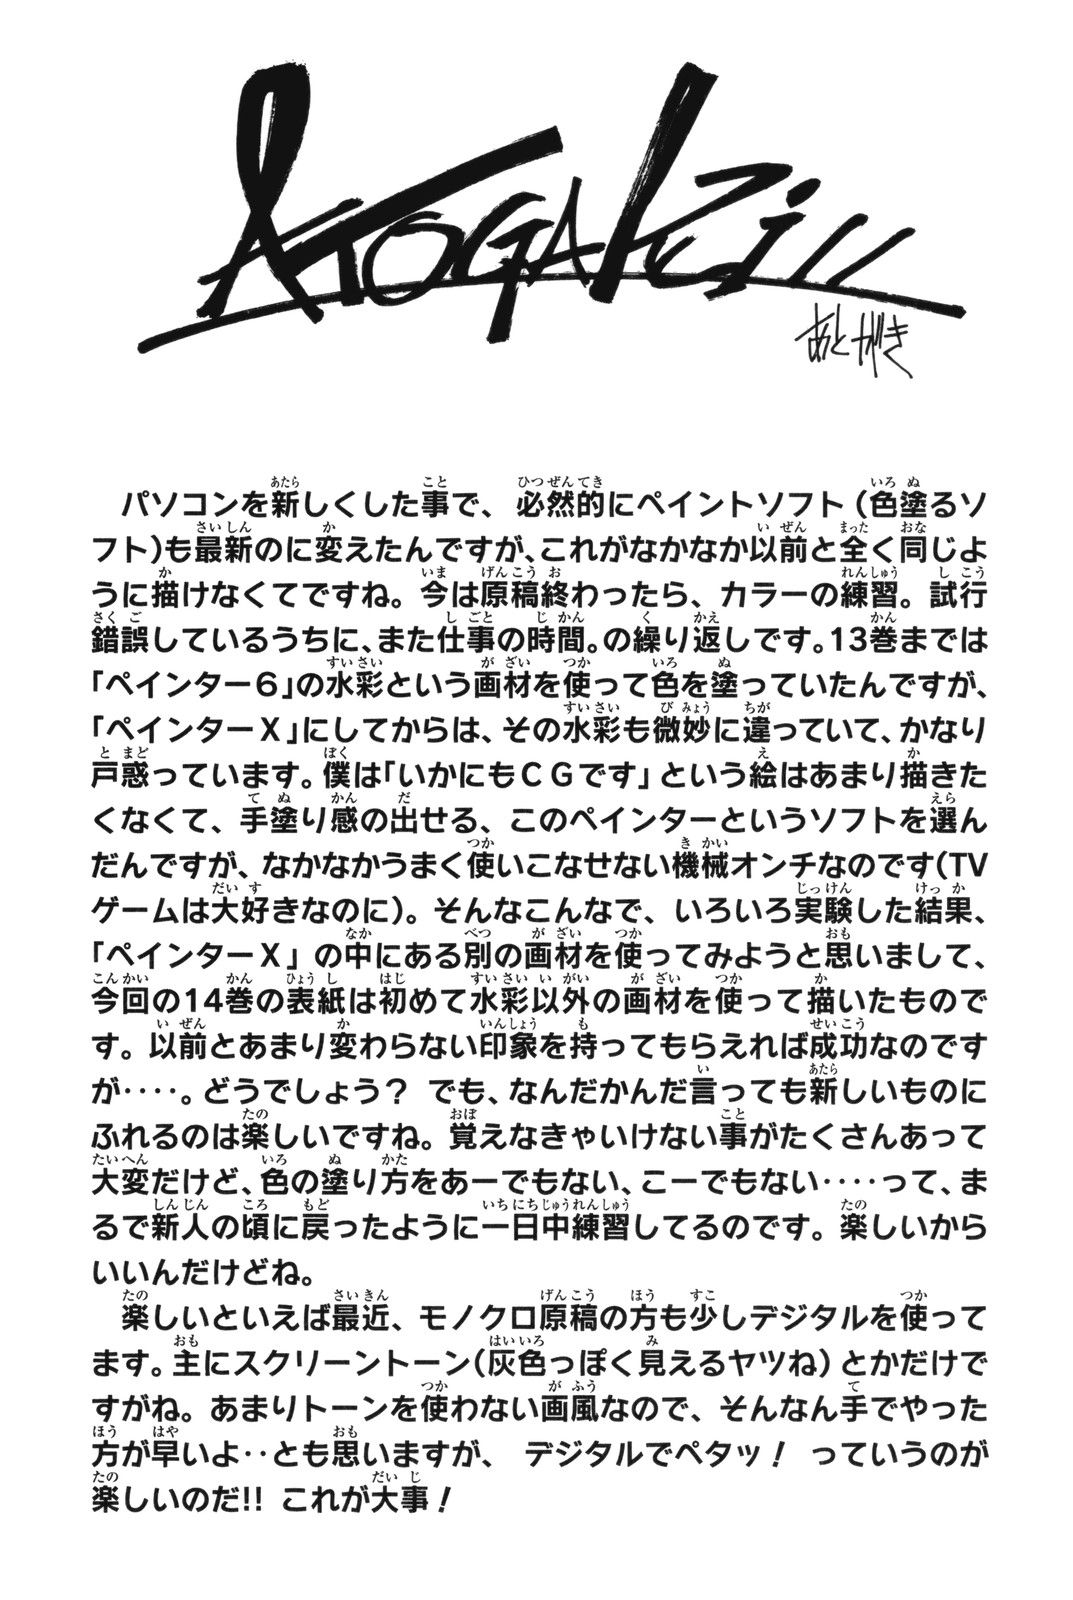 ATOGAKi!!
あとがき
パソコンを新しくした事で、必然的にペイントソフト（色塗るソ
フト）も最新のに変えたんですが、これがなかなか以前と全く同じよ
うに描けなくてですね。今は原稿終わったら、カラーの練習。試行
錯誤しているうちに、また仕事の時間。の繰り返しです。13巻までは
「ペインター６」の水彩という画材を使って色を塗っていたんですが、
「ペインターＸ」にしてからは、その水彩も微妙に違っていて、かなり
戸惑っています。僕は「いかにもＣＧです」という絵はあまり描きた
くなくて、手塗り感の出せる、このペインターというソフトを選ん
だんですが、なかなかうまく使いこなせない機械オンチなのです（TV
ゲームは大好きなのに）。そんなこんなで、いろいろ実験した結果、
「ペインターＸ」の中にある別の画材を使ってみようと思いまして、
今回の14巻の表紙は初めて水彩以外の画材を使って描いたもので
す。以前とあまり変わらない印象を持ってもらえれば成功なのです
が‥‥。どうでしょう？ でも、なんだかんだ言っても新しいものに
ふれるのは楽しいですね。覚えなきゃいけない事がたくさんあって
大変だけど、色の塗り方をあーでもない、こーでもない‥‥って、ま
るで新人の頃に戻ったように一日中練習してるのです。楽しいから
いいんだけどね。
楽しいといえば最近、モノクロ原稿の方も少しデジタルを使って
ます。主にスクリーントーン（灰色っぽく見えるヤツね）とかだけで
すがね。あまりトーンを使わない画風なので、そんなん手でやった
方が早いよ‥とも思いますが、 デジタルでペタッ！ っていうのが
楽しいのだ!! これが大事！